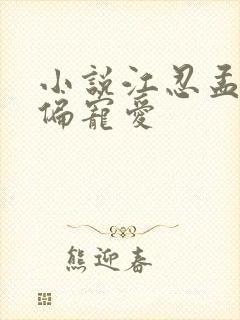 小說江忍孟
偏寵愛
熊迎春